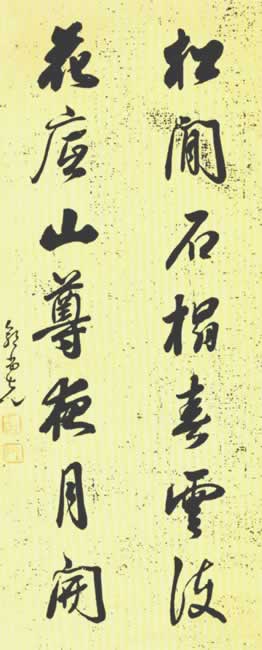 松間石榻春雲
花山尊夜月開
郭尚先